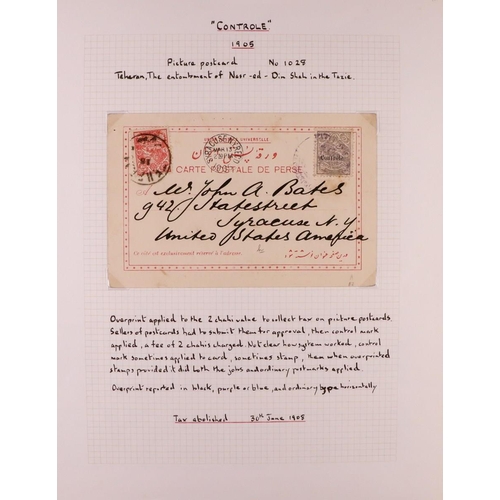 "CONTROLE"
1905
Picture postcard No 1028
Teheran, The entombment of Nasr-ed-Din Shah in the Tazie.
UNION POSTALE UNIVERSELLE
CARTE POSTALE DE PERSE
Controle
Mr. John A. Bates
942 Statestreet
Syracuse N.Y.
United States America
Ce côté est exclusivement réservé à l'adresse.
Overprint applied to the 2 chahi value to collect tax on picture postcards.
Sellers of postcards had to submit them for approval, then control mark
applied, a fee of 2 chahis charged. Not clear how system worked, control
mark sometimes applied to card, sometimes stamp, then when overprinted
stamps provided it did both the jobs and ordinary postmarks applied.
Overprint reported in black, purple or blue, and ordinary type horizontally
Tax abolished 30th June 1905